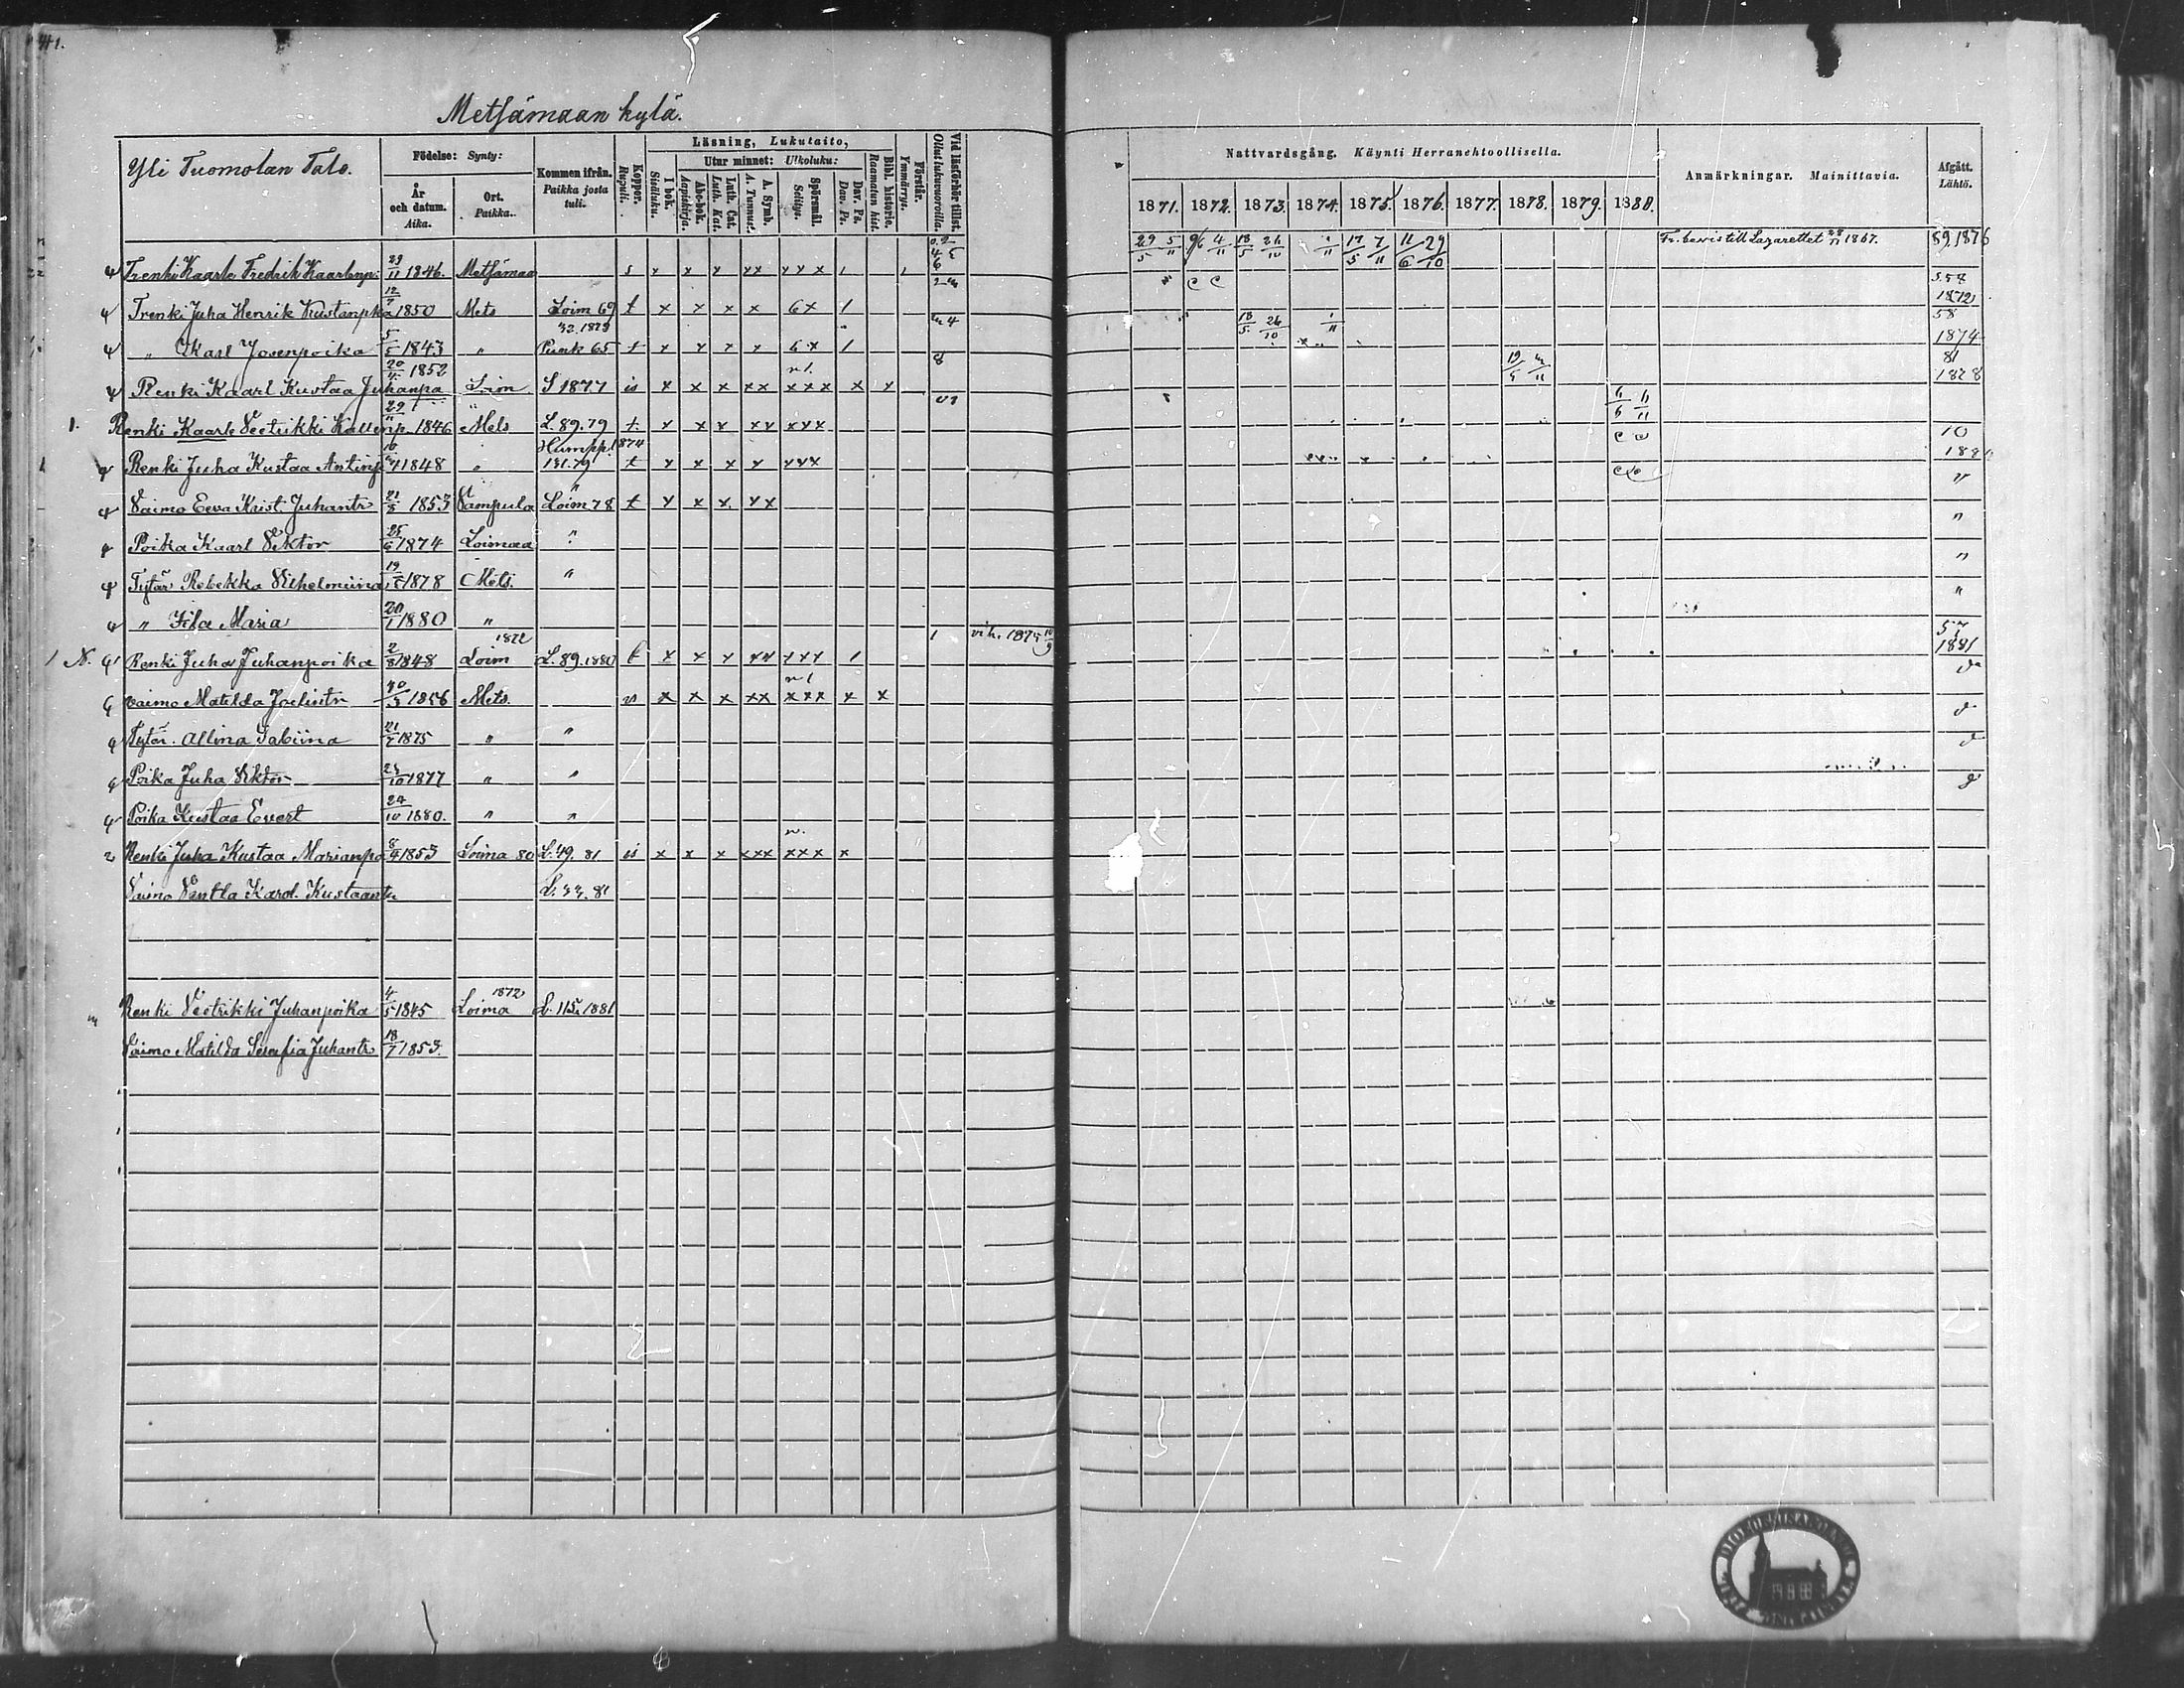 41.
Metsämaan kylä.
Yli Tuomolan Talo.
Födelse: Synty:
År och datum. Aika.
Ort. Paikka.
Kommen ifrån. Paikka josta tuli.
Koppor. Rupuli.
Läsning, Lukutaito,
I bok. Sisäluku.
Utur minnet: Ulkoluku:
Abc-bok. Aapiskirja.
Luth. Cat. Luth. Kat.
A. Symb. A. Tunnust.
Spörsmål. Selitys.
Dav. Ps. Dav. Ps.
Bibl. historie. Raamatun hist.
Förstår. Ymmärrys.
Vid läsförhör tillst. Ollut lukuvuoroilla.
Nattvardsgång. Käynti Herranehtoollisella.
1871. 1872. 1873. 1874. 1875. 1876. 1877. 1878. 1879. 1880.
Anmärkningar. Mainittavia.
Afgått. Lähtö.
Trenki Kaarle Fredrik Kaarlenp. 29/11 1846. Metsämaa s x x x xx xxx 1 1 29/5 5/11 9/6 4/11 18/5 26/10 1/11 17/5 7/11 11/6 29/10 Fr. bevis till Lazarettet 1867. 89 1876
Trenki Juha Henrik Kustanpka 12/7 1850 Mets Loim 69 t x x x x 6x 1 1872
" Karl Josenpoika 5/5 1843 " Punk 65 t x x x x 6x 1 18/5 26/10 1/11 58 1874
Renki Kaarl Kustaa Juhanpa 20/4 1852 Loim S 1877 is x x x xx xxx x x 8 81 1878
1. Renki Kaarle Veetrikki Kallenp. 29/11 1846 Mets L 89.79 t x x x xx xxx
Renki Juha Kustaa Antinp 1848 " Humpp. 1874 131.79 t x x x x xxx 10
Vaimo Eeva Krist. Juhantr 21/5 1853 Vampula Loim 78 t x x x xx "
Poika Kaarl Viktor 25/6 1874 Loimaa " "
Tytär Rebekka Vilhelmiina 1878 Mets. " "
" Iida Maria 20/1 1880 " "
1 N. Renki Juha Juhanpoika 2/8 1848 Loim 1872 L. 89. 1880 t x x x xx xxx 1 1 vih. 1875 57 1881
Vaimo Matilda 1856 Mets. x x x xx xxx x x
Tytär. Allina Sabiina 1875 " "
Poika Juha Viktor 1877 " "
Poika Kustaa Evert 24/10 1880. " "
2 Renki Juha Kustaa Marianpa 8/9 1853 Loima 80 L. 49. 81 is x x x xxx xxx x
Vaimo Karol. Kustaantr. L. 33. 81
Renki Veetrikki Juhanpoika 4/5 1845 Loima 1872 L. 115. 1881
Vaimo Matilda Serafia Juhantr 18/7 1853.